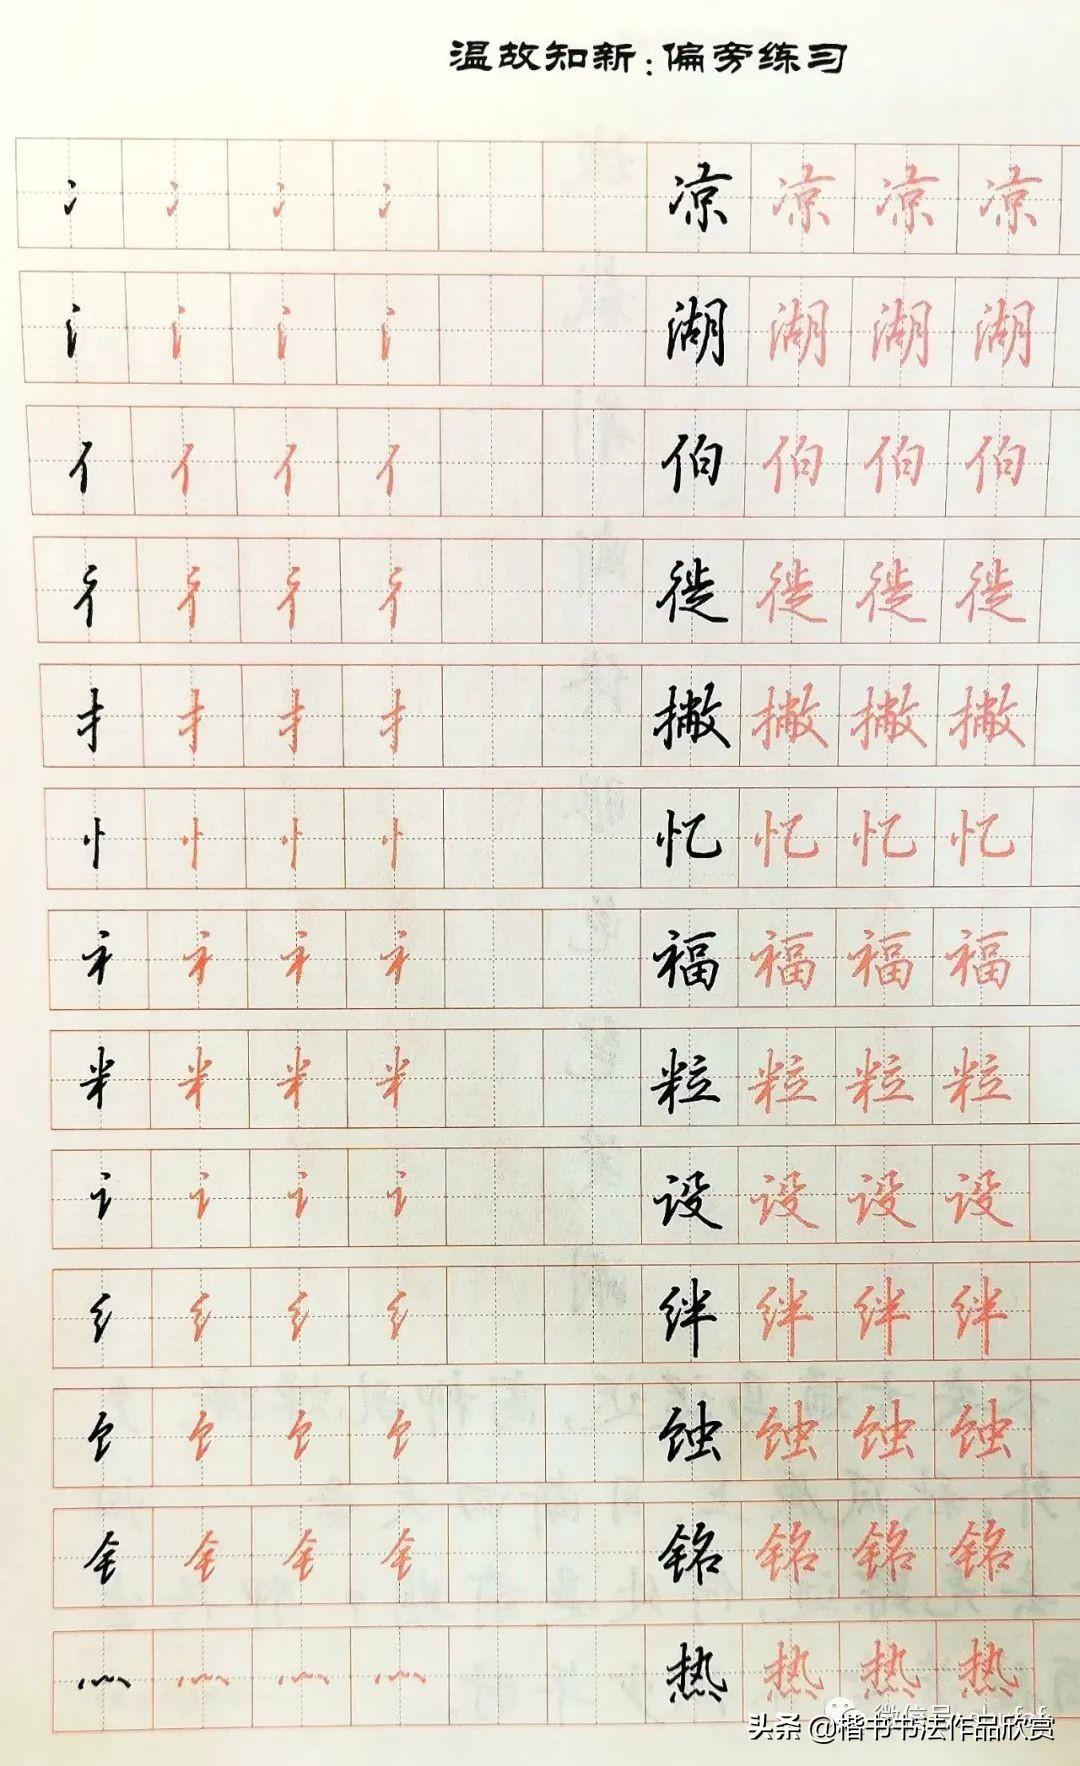 温故知新:偏旁练习
冫 冫 冫 冫 凉 凉 凉 凉
氵 氵 氵 氵 湖 湖 湖 湖
亻 亻 亻 亻 伯 伯 伯 伯
彳 彳 彳 彳 徙 徙 徙 徙
扌 扌 扌 扌 撇 撇 撇 撇
忄 忄 忄 忄 忆 忆 忆 忆
礻 礻 礻 礻 福 福 福 福
米 米 米 米 粒 粒 粒 粒
讠 讠 讠 讠 设 设 设 设
纟 纟 纟 纟 绊 绊 绊 绊
饣 饣 饣 饣 蚀 蚀 蚀 蚀
钅 钅 钅 钅 铭 铭 铭 铭
灬 灬 灬 灬 热 热 热 热
微信号
头条 @楷书书法作品欣赏